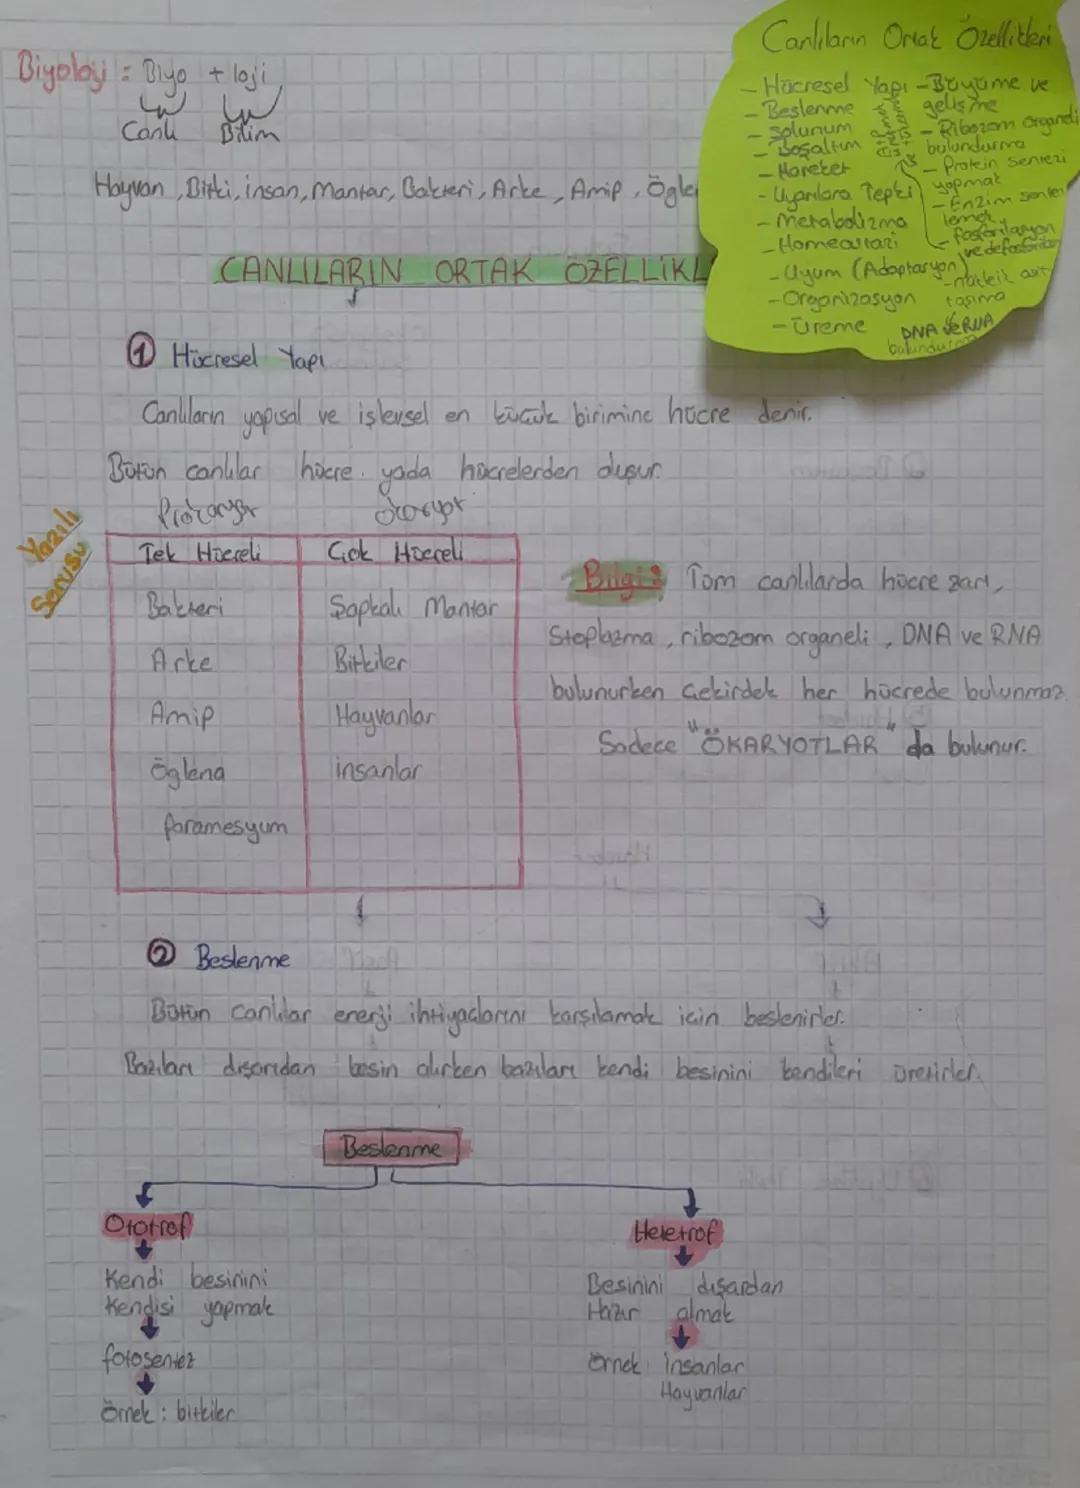 Biyoloji : Biyo + loji
Canlı Bilim
Hayvan, Bitki, insan, Mantar, Bakteri, Arke, Amip, Öglen
CANLILARIN ORTAK ÖZELLİKL
Canlıların Ortak Özellikleri
- Hücresel Yapı
- Beslenme
- Solunum
- Boşaltım
- Hareket
- Uyarılara Tepki
- Metabolizma
- Homeostazi
- Uyum (Adaptasyon)
- Organizasyon
- Üreme
- Büyüme ve
gelişme
- Ribozom Organeli
bulundurma
- Protein sentezi
yapmak
- Enzim sentez
lemek
- fosforilasyon
ve defosforilasyon
- nükleik asit
taşıma
DNA ve RNA
bulundurma
① Hücresel Yapı
Canlıların yapısal ve işlevsel en küçük birimine hücre denir.
Bütün canlılar hücre yada hücrelerden oluşur.
Yazılı
Sorusu
Prokaryot Ökaryot
Tek Hücreli Çok Hücreli
Bakteri Şapkalı Mantar
Arke Bitkiler
Amip Hayvanlar
Öglena insanlar
Paramesyum
Bilgi : Tüm canlılarda hücre zarı,
Stoplazma, ribozom organeli, DNA ve RNA
bulunurken Çekirdek her hücrede bulunmaz.
Sadece "ÖKARYOTLAR" da bulunur.
② Beslenme
Bütün canlılar enerji ihtiyaçlarını karşılamak için beslenirler.
Bazıları dışarıdan besin alırken bazıları kendi besinini kendileri üretirler.
Beslenme
Ototrof
Kendi besinini
Kendisi yapmak
fotosentez
Örnek : bitkiler
Heletrof
Besinini dışardan
Hazır almak
Örnek: insanlar
Hayvanlar